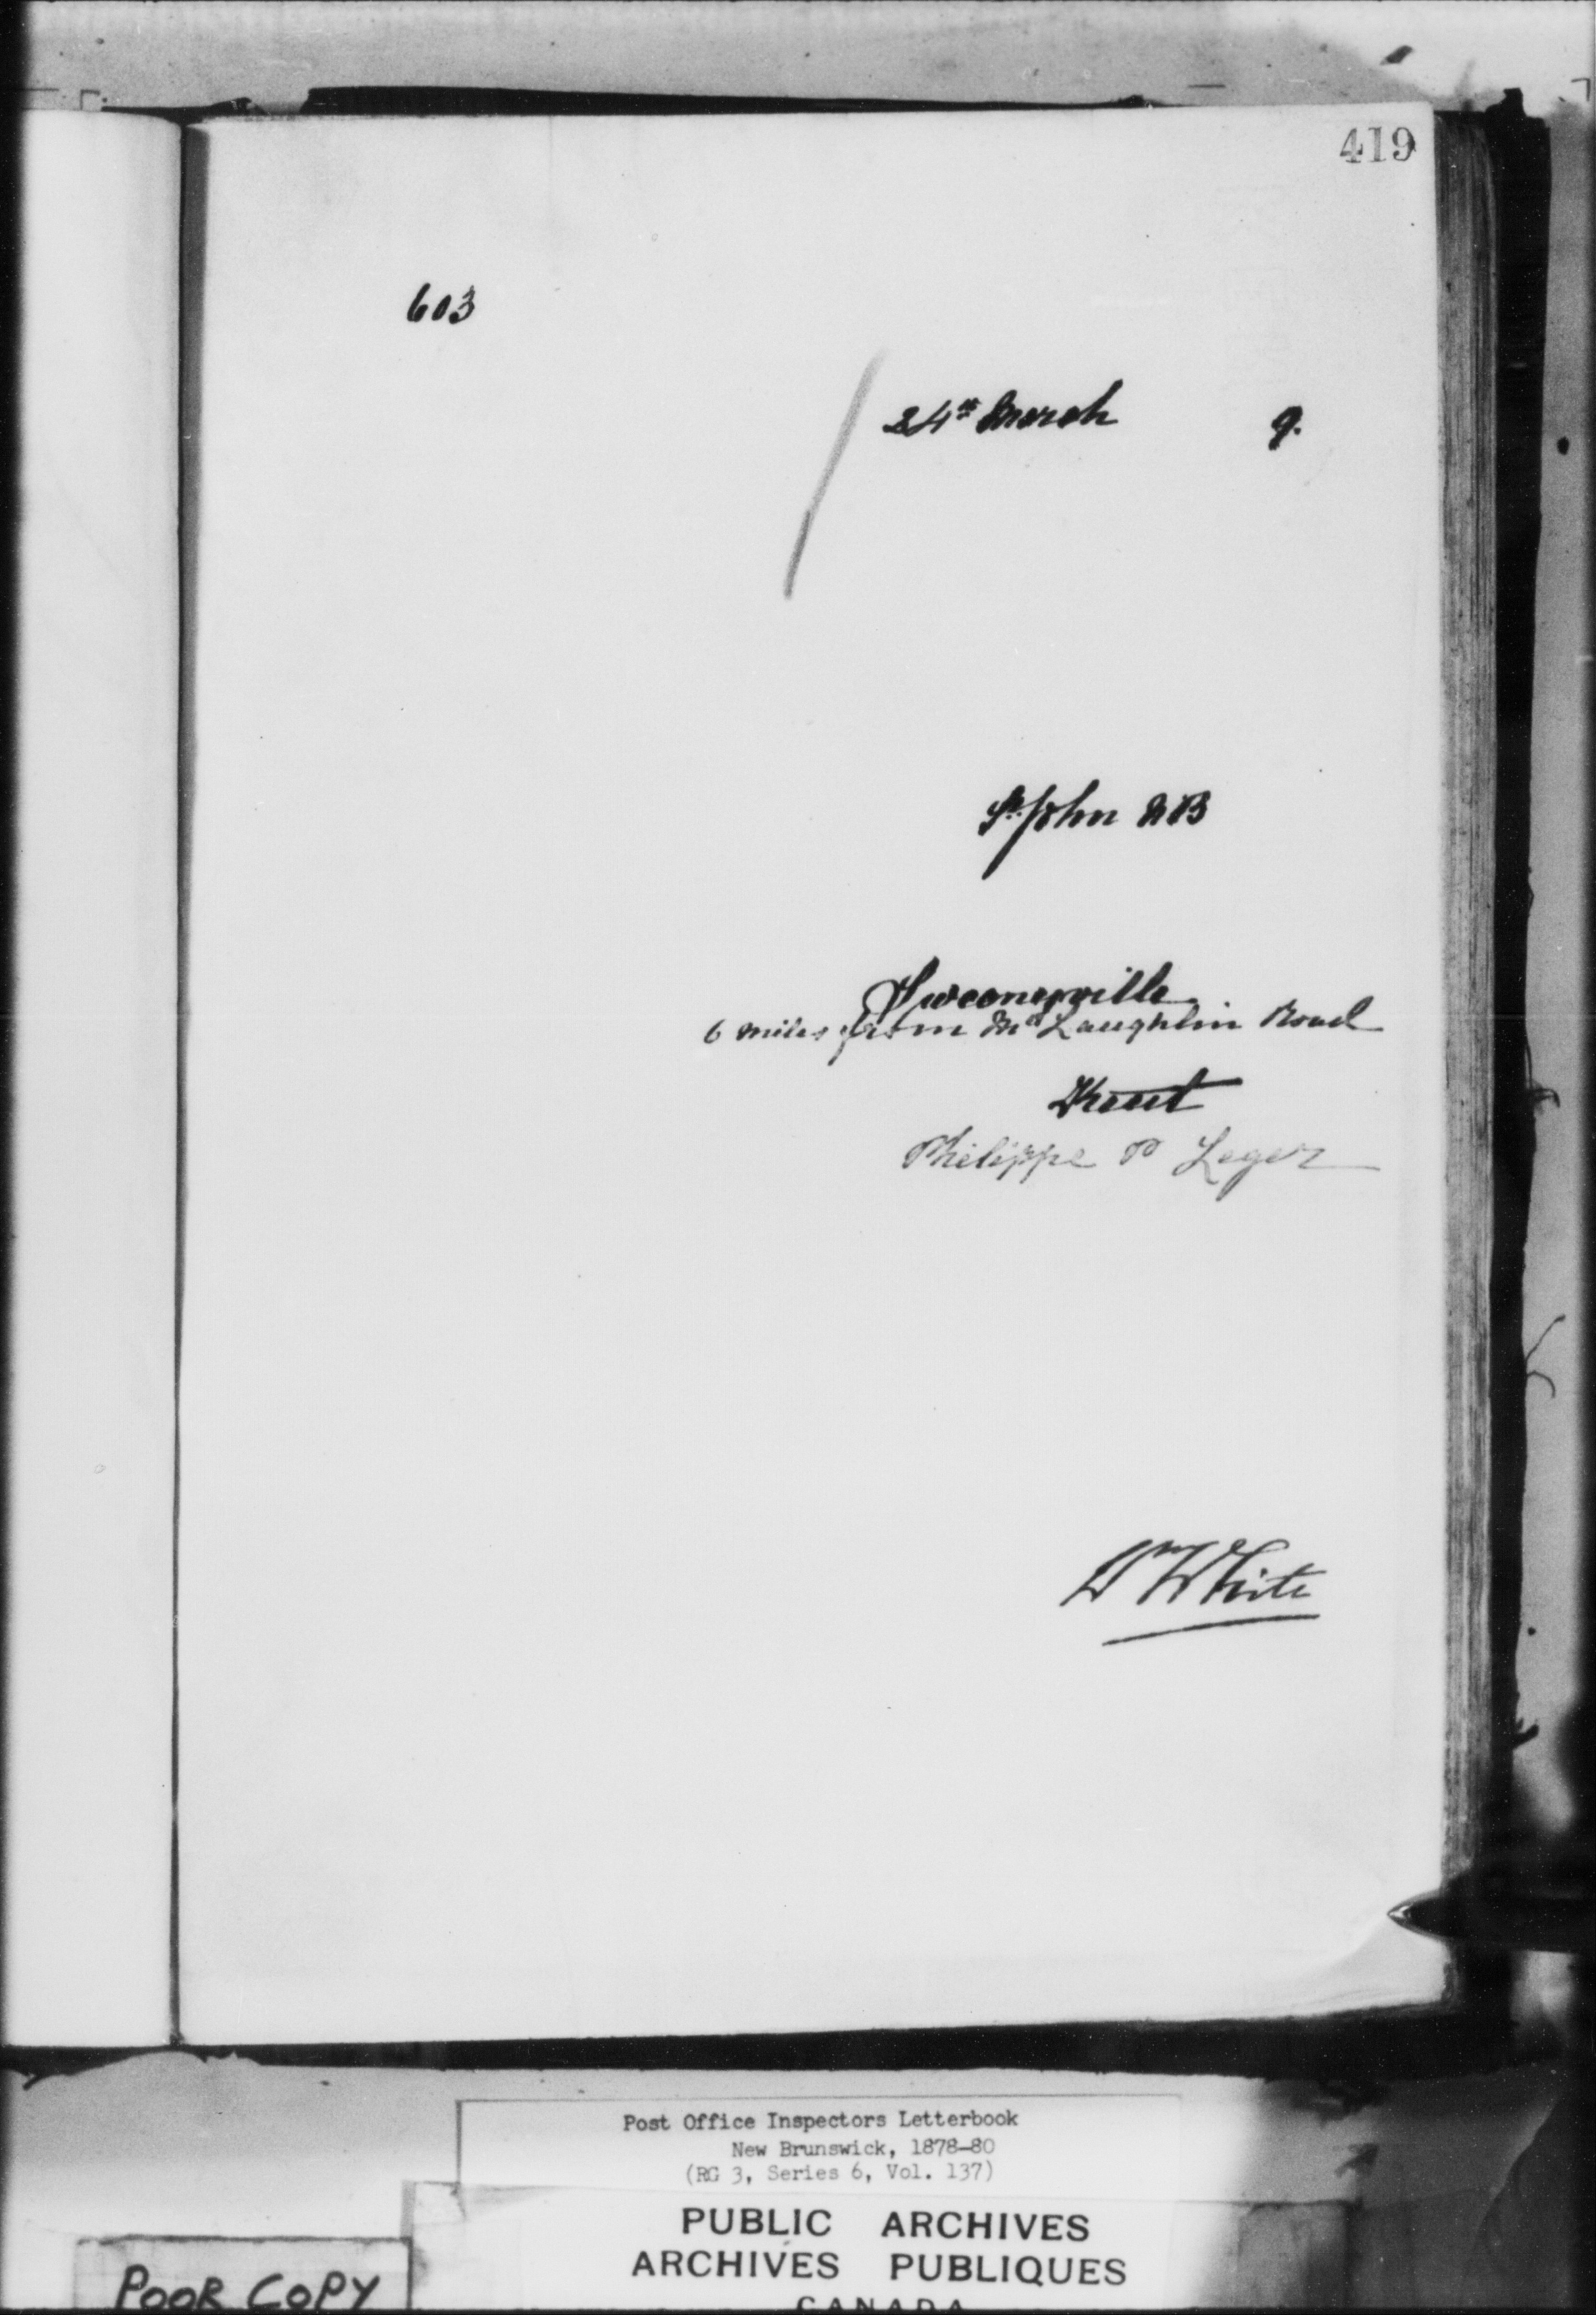 419
603
24th March 9.
St. John NB
Sweeneyville
6 miles from McLaughlin Road
Kent
Philippe P Leger
W White
Post Office Inspectors Letterbook
New Brunswick, 1878-80
(RG 3, Series 6, Vol. 137)
PUBLIC ARCHIVES
ARCHIVES PUBLIQUES
CANADA
POOR COPY